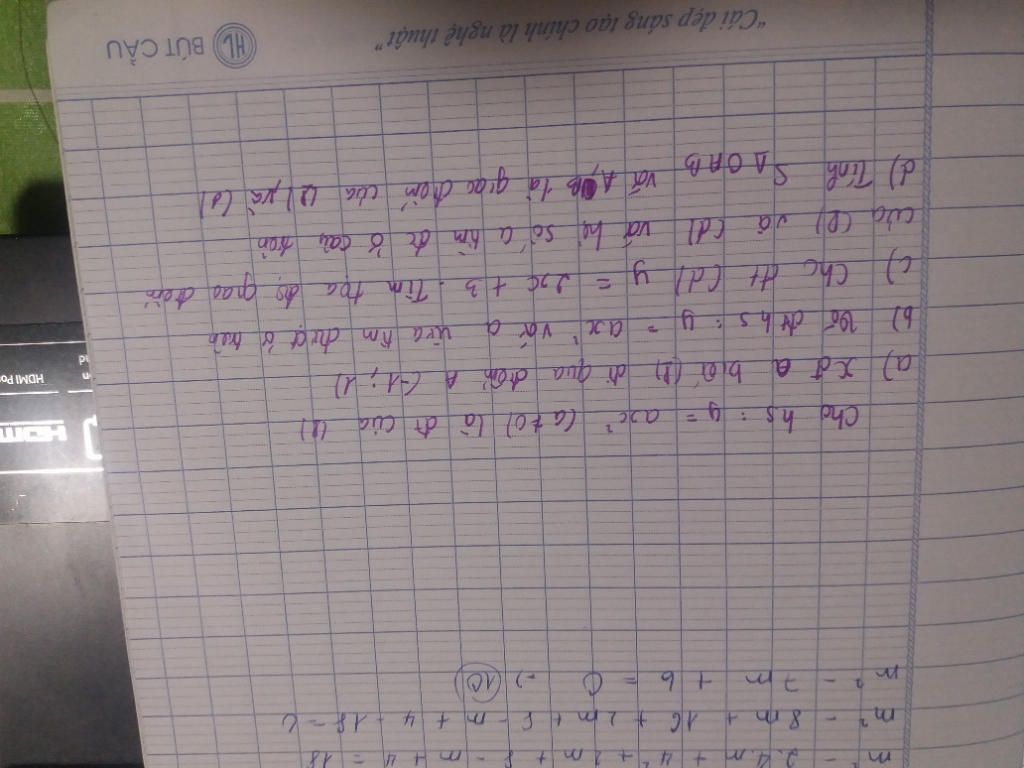 m² - 2.4.m + 4² + 2m + 8 - m + 4 = 18
m² - 8m + 16 + 2m + 8 - m + 4 - 18 = 0
m² - 7m + 6 = 0 →) 10
Cho hs: y = ax² (a ≠ 0) là đt của (P)
a) xđ a biết (P) đi qua điểm A (-1; 1)
b) Vẽ đths: y = ax² với a vừa tìm được ở trên
c) Cho đt (d) y = 2x + 3. Tìm tọa độ giao điểm
của (P) và (d) với hệ số a tìm đc ở câu trên
d) Tính S △OAB với A, B là giao điểm của (P) và (d)
"Cái đẹp sáng tạo chính là nghệ thuật"
HL BÚT CẦU
HDMI
HDMI Po